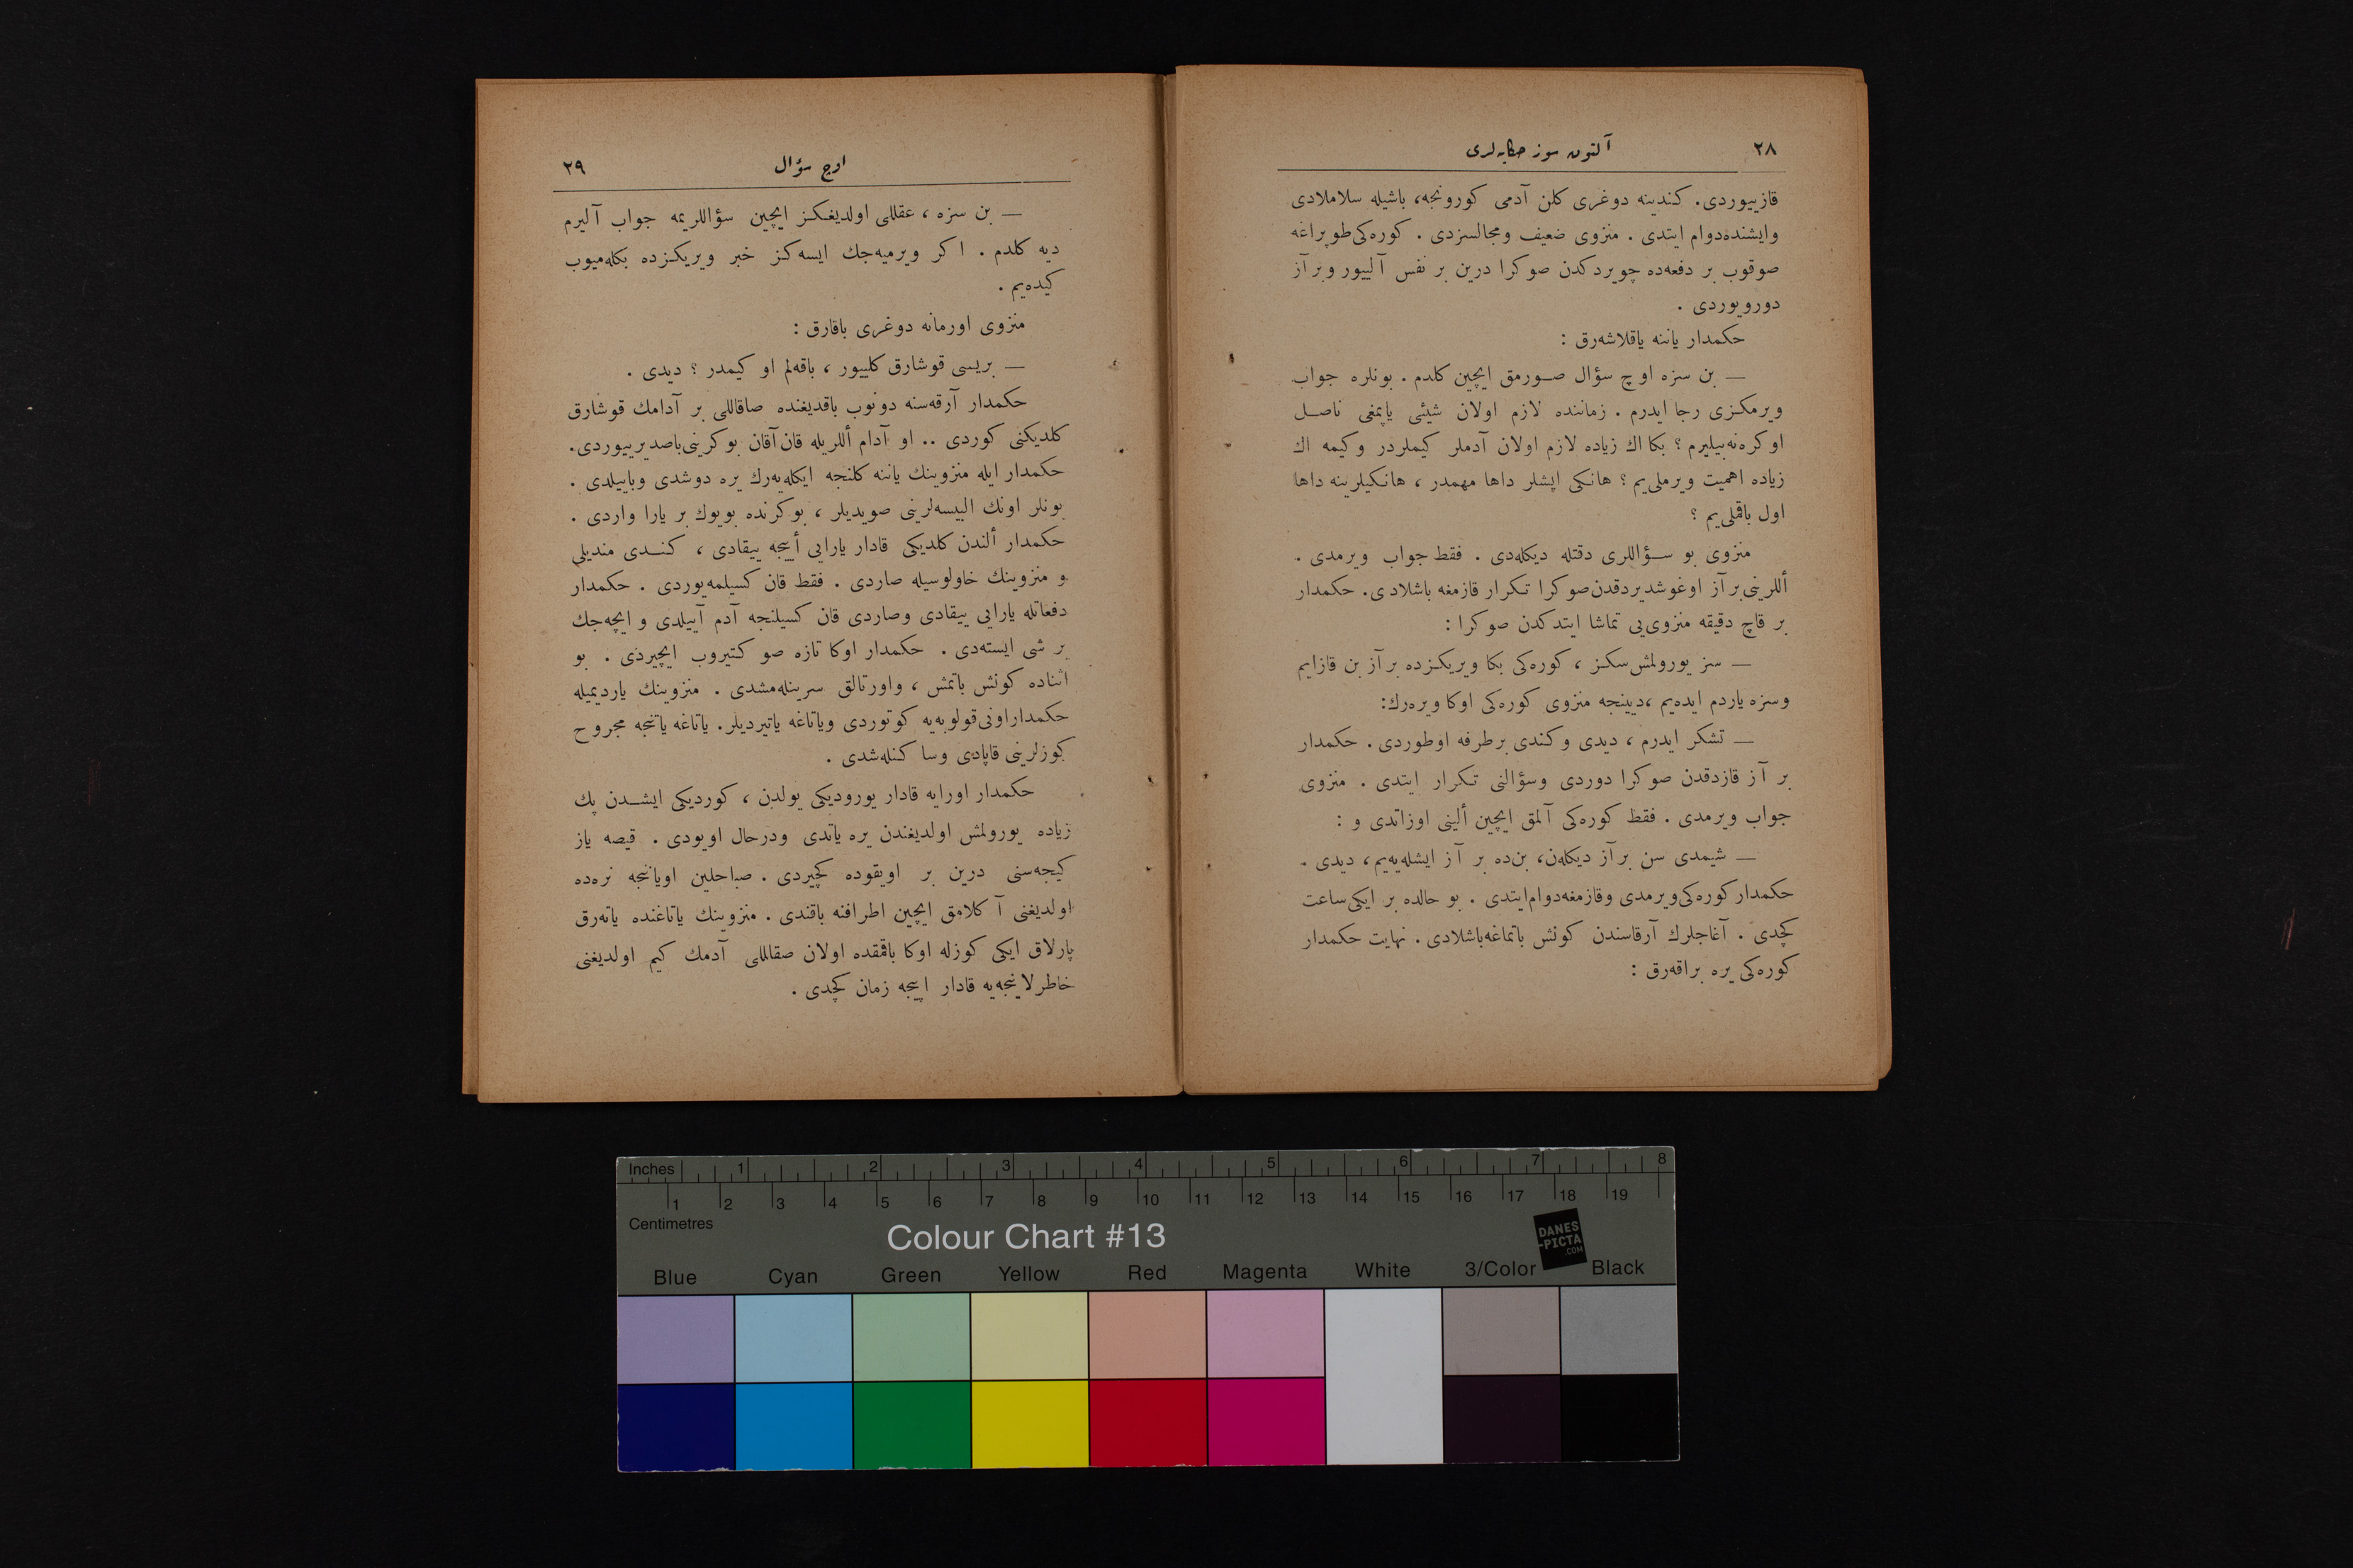 ٢٨
آلتون سوز حكايه‌لری
قازييوردی. كندينه دوغری كلن آدمی كورونجه، باشيله سلاملادی
وايشنده‌دوام ايتدی . منزوی ضعيف ومجالسزدی . كوره‌كی‌طوپراغه
صوقوب بر دفعه‌ده چويردكدن صوكرا درين بر نفس آلييور وبر آز
دورويوردی .
حكمدار ياننه ياقلاشه‌رق :
— بن سزه اوچ سؤال صورمق ايچين كلدم . بونلره جواب
ويرمكزی رجا ايدرم . زماننده لازم اولان شيئی ياپمغی ناصل
اوكره‌نه‌بيليرم ؟ بكا اك زياده لازم اولان آدملر كيملردر وكيمه اك
زياده اهميت ويرملی‌يم ؟ هانكی ايشلر داها مهمدر ، هانكيلرينه داها
اول باقملی‌يم ؟
منزوی بو سؤاللری دقتله ديكله‌دی . فقط جواب ويرمدی .
أللرينی بر آز اوغوشديردقدن صوكرا تكرار قازمغه باشلادی. حكمدار
بر قاچ دقيقه منزوی‌يی تماشا ايتدكدن صوكرا :
— سز يورولمش‌سكز ، كوره‌كی بكا ويريكزده بر آز بن قازايم
وسزه ياردم ايده‌يم ،ديينجه منزوی كوره‌كی اوكا ويره‌رك:
— تشكر ايدرم ، ديدی وكندی برطرفه اوطوردی . حكمدار
بر آز قازدقدن صوكرا دوردی وسؤالنی تكرار ايتدی . منزوی
جواب ويرمدی . فقط كوره‌كی آلمق ايچين ألينی اوزاتدی و :
— شيمدی سن بر آز ديكله‌ن، بن‌ده بر آز ايشله‌يه‌يم، ديدی .
حكمدار كوره‌كی ويرمدی وقازمغه‌دوام‌ايتدی . بو حالده بر ايكی ساعت
كچدی . آغاجلرك آرقاسندن كونش باتماغه‌باشلادی . نهايت حكمدار
كوره‌كی يره براقه‌رق :
اوچ سؤال
٢٩
— بن سزه ، عقللی اولديغكز ايچين سؤاللريمه جواب آليرم
ديه كلدم . اكر ويرميه‌جك ايسه‌كز خبر ويريكزده بكله‌ميوب
كيده‌يم .
منزوی اورمانه دوغری باقارق :
— بريسی قوشارق كلييور ، باقه‌لم او كيمدر ؟ ديدی .
حكمدار آرقه‌سنه دونوب باقديغنده صاقاللی بر آدامك قوشارق
كلديكنی كوردی .. او آدام أللريله قان آقان بوكرينی‌باصديرييوردی.
حكمدار ايله منزوينك ياننه كلنجه ايكله‌يه‌رك يره دوشدی وبايیلدی .
بونلر اونك البيسه‌لرينی صويديلر ، بوكرنده بويوك بر يارا واردی .
حكمدار ألندن كلديكی قادار يارايی أييجه ييقادی ، كندی منديلی
و منزوينك خاولوسيله صاردی . فقط قان كسيلمه‌يوردی . حكمدار
دفعاتله يارايی ييقادی وصاردی قان كسيلنجه آدم آييلدی و ايچه‌جك
بر شی ايسته‌دی . حكمدار اوكا تازه صو كتيروب ايچيردی . بو
اثناده كونش باتمش ، واورتالق سرينله‌مشدی . منزوينك يارديميله
حكمداراونی‌قولوبه‌يه كوتوردی وياتاغه ياتيرديلر. ياتاغه ياتنجه مجروح
كوزلرينی قاپادی وسا كنله‌شدی .
حكمدار اورايه قادار يوروديكی يولدن ، كورديكی ايشدن پك
زياده يورولمش اولديغندن يره ياتدی ودرحال اويودی . قيصه ياز
كيجه‌سنی درين بر اويقوده كچيردی . صباحلين اويانجه نره‌ده
اولديغنی آكلامق ايچين اطرافنه باقندی . منزوينك ياتاغنده ياته‌رق
پارلاق ايكی كوزله اوكا باقمقده اولان صقاللی آدمك كيم اولديغنی
خاطرلاينجه‌يه قادار اييجه زمان كچدی .
Inches 1 2 3 4 5 6 7 8
1 2 3 4 5 6 7 8 9 10 11 12 13 14 15 16 17 18 19
Centimetres
Colour Chart #13
DANES
-PICTA
.COM
Blue Cyan Green Yellow Red Magenta White 3/Color Black